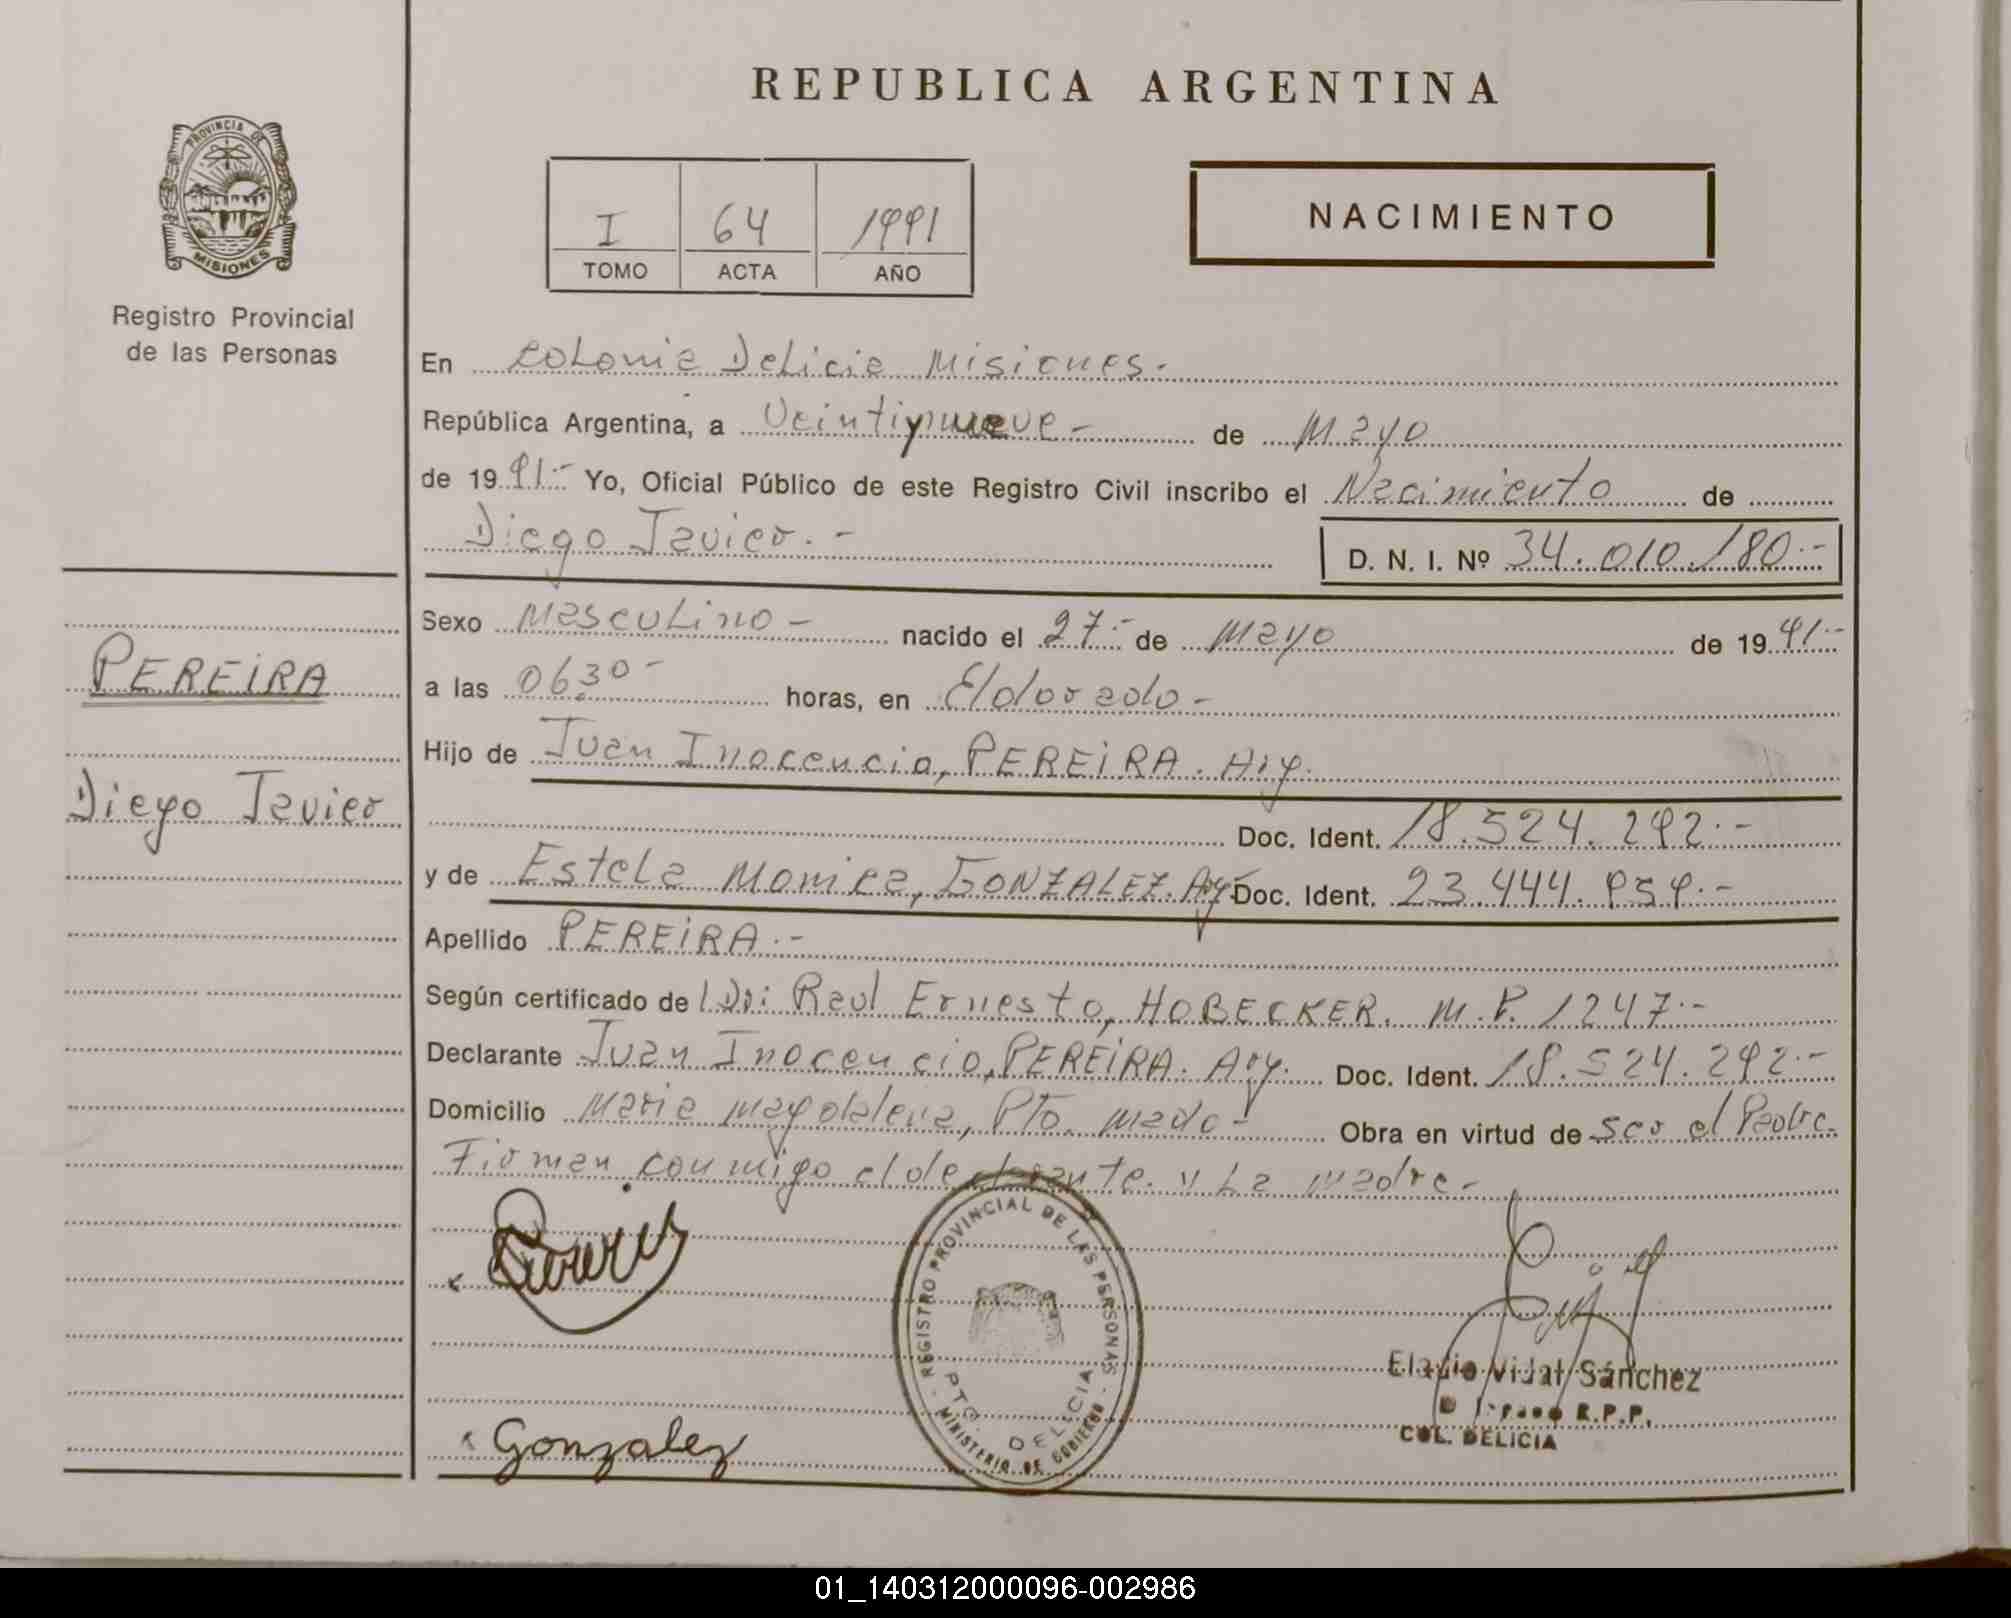 REPUBLICA ARGENTINA
PROVINCIA DE
MISIONES
Registro Provincial
de las Personas
I 64 1991
TOMO ACTA AÑO
NACIMIENTO
En Colonia Delicia Misiones.
República Argentina, a Veintinueve - de Mayo
de 1991.- Yo, Oficial Público de este Registro Civil inscribo el Nacimiento de
Diego Javier.-
D. N. I. Nº 34.010.180.-
Sexo Masculino - nacido el 27.- de Mayo de 1991.-
a las 06.30 - horas, en Eldorado -
Hijo de Juan Inocencio, PEREIRA. Arg.
Doc. Ident. 18.524.292.-
y de Estela Monica, GONZALEZ. Arg. Doc. Ident. 23.444.959.-
Apellido PEREIRA.-
Según certificado de Dr: Raul Ernesto, HOBECKER. M.P. 1247.-
Declarante Juan Inocencio, PEREIRA. Arg. Doc. Ident. 18.524.292.-
Domicilio Maria Magdalena, Pto. Mado - Obra en virtud de ser el Padre.
Firman conmigo el declarante y La madre -
PEREIRA
Diego Javier
REGISTRO PROVINCIAL DE LAS PERSONAS
PTO. DELICIA
MINISTERIO DE GOBIERNO
Gonzalez
Eladio Vidal Sánchez
R.P.P.
COL. DELICIA
01_140312000096-002986